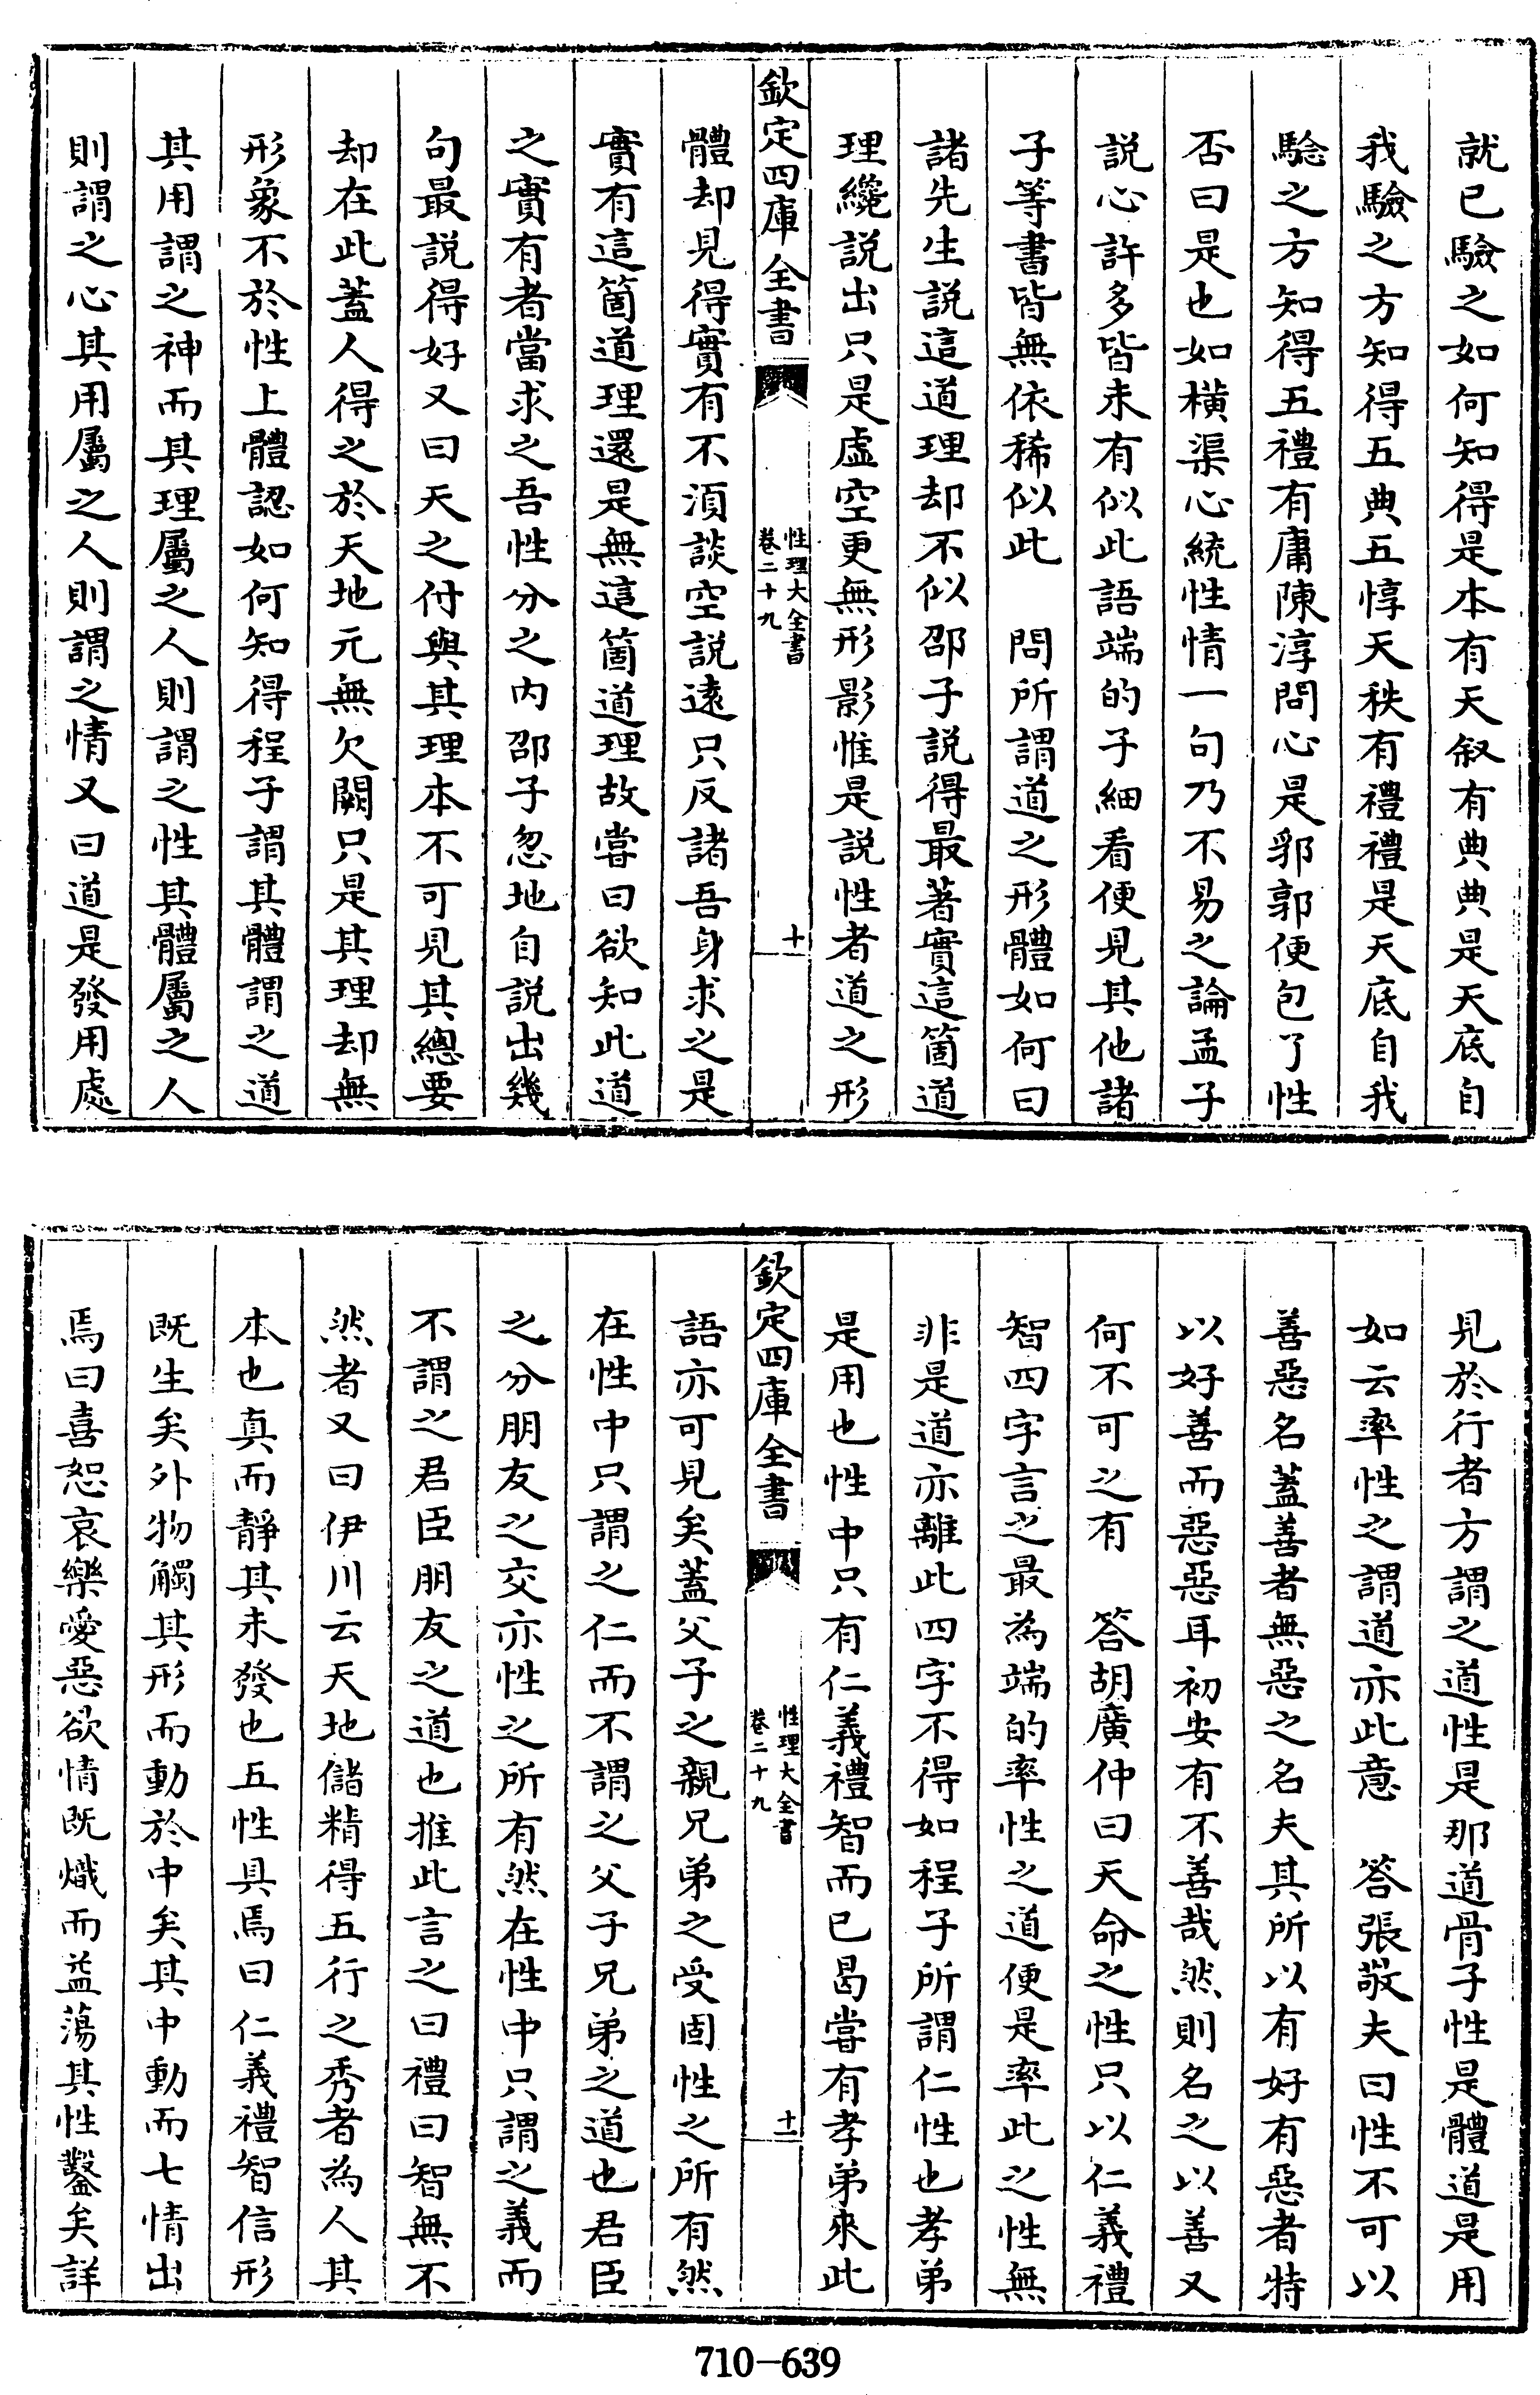 就已驗之如何知得是本有天叙有典典是天底自
我驗之方知得五典五惇天秩有禮禮是天底自我
驗之方知得五禮有庸陳淳問心是郛郭便包了性
否曰是也如横渠心統性情一句乃不易之論孟子
説心許多皆未有似此語端的子細看便見其他諸
子等書皆無依稀似此　問所謂道之形體如何曰
諸先生説這道理却不似邵子説得最著實這箇道
理纔説出只是虛空更無形影惟是説性者道之形
欽定四庫全書
性理大全書
卷二十九
十
體却見得實有不須談空説遠只反諸吾身求之是
實有這箇道理還是無這箇道理故嘗曰欲知此道
之實有者當求之吾性分之内邵子忽地自説出幾
句最説得好又曰天之付與其理本不可見其總要
却在此蓋人得之於天地元無欠闕只是其理却無
形象不於性上體認如何知得程子謂其體謂之道
其用謂之神而其理屬之人則謂之性其體屬之人
則謂之心其用屬之人則謂之情又曰道是發用處
見於行者方謂之道性是那道骨子性是體道是用
如云率性之謂道亦此意　答張敬夫曰性不可以
善惡名蓋善者無惡之名夫其所以有好有惡者特
以好善而惡惡耳初安有不善哉然則名之以善又
何不可之有　答胡廣仲曰天命之性只以仁義禮
智四字言之最為端的率性之道便是率此之性無
非是道亦離此四字不得如程子所謂仁性也孝弟
是用也性中只有仁義禮智而已曷嘗有孝弟來此
欽定四庫全書
性理大全書
卷二十九
十一
語亦可見矣蓋父子之親兄弟之受固性之所有然
在性中只謂之仁而不謂之父子兄弟之道也君臣
之分朋友之交亦性之所有然在性中只謂之義而
不謂之君臣朋友之道也推此言之曰禮曰智無不
然者又曰伊川云天地儲精得五行之秀者為人其
本也真而靜其未發也五性具焉曰仁義禮智信形
既生矣外物觸其形而動於中矣其中動而七情出
焉曰喜怒哀樂愛惡欲情既熾而益蕩其性鑿矣詳
710-639